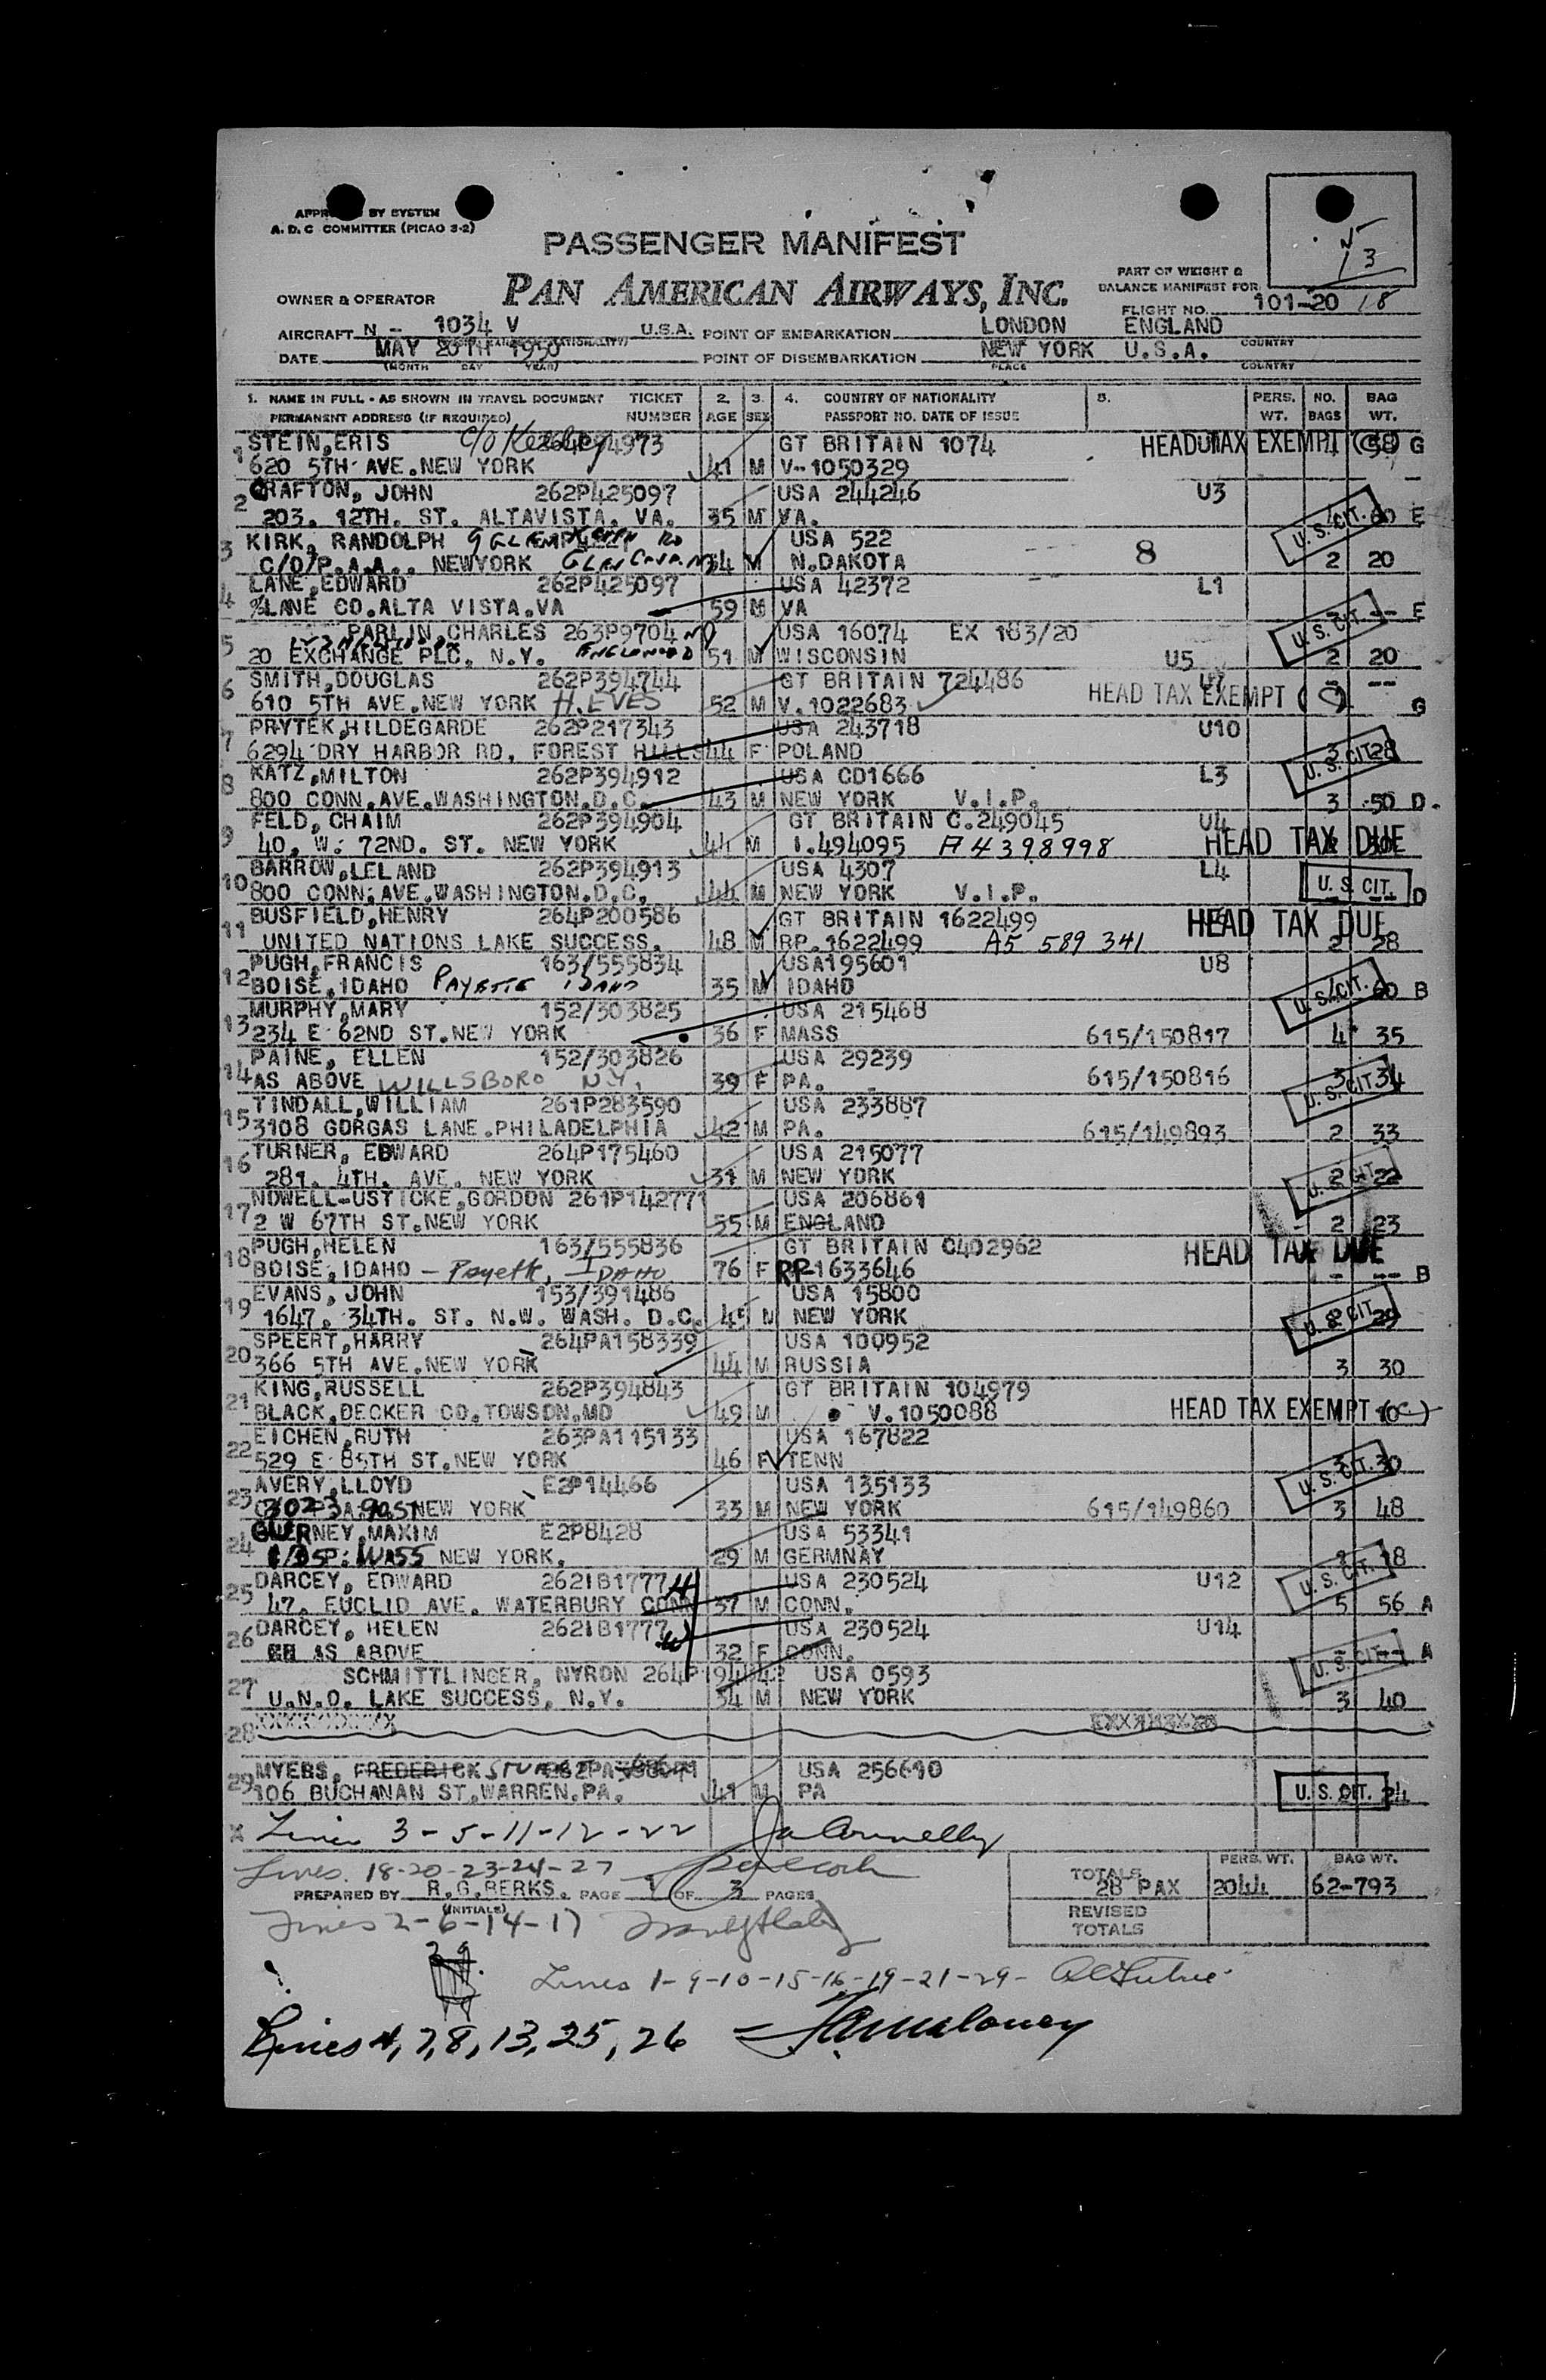 APPR BY SYSTEM
A. D. C COMMITTER (PICAO 3-2)
PASSENGER MANIFEST
PAN AMERICAN AIRWAYS, INC.
PART OF WEIGHT &
BALANCE MANIFEST FOR
OWNER & OPERATOR
FLIGHT NO. 101-20 18
AIRCRAFT N - 1034 V U.S.A. POINT OF EMBARKATION LONDON ENGLAND
DATE MAY 20TH 1950 POINT OF DISEMBARKATION NEW YORK U.S.A. COUNTRY
(MONTH DAY YEAR) PLACE COUNTRY
1. NAME IN FULL - AS SHOWN IN TRAVEL DOCUMENT TICKET 2. 3. 4. COUNTRY OF NATIONALITY 5. PERS. NO. BAG
PERMANENT ADDRESS (IF REQUIRED) NUMBER AGE SEX PASSPORT NO. DATE OF ISSUE WT. BAGS WT.
1 STEIN,ERIS c/o 4973 GT BRITAIN 1074 HEAD TAX EXEMPT G
620 5TH AVE.NEW YORK 41 M V-1050329
2 GRAFTON, JOHN 262P425097 USA 244246 U3
203. 12TH. ST. ALTAVISTA. VA. 35 M VA. U. S. CIT. 60 E
3 KIRK, RANDOLPH USA 522 8
C/O/P.A.A.. NEWYORK M N.DAKOTA 2 20
4 LANE,EDWARD 262P425097 USA 42372 L1
%LANE CO.ALTA VISTA.VA 59 M VA -- E
5 PARLIN,CHARLES 263P9704 USA 16074 EX 183/20 U. S. CIT.
20 EXCHANGE PLC, N.Y. ENGLEWOOD 51 M WISCONSIN U5 2 20
6 SMITH,DOUGLAS 262P394744 GT BRITAIN 724486
610 5TH AVE.NEW YORK H. EVES 52 M V.1022683 HEAD TAX EXEMPT G
7 PRYTEK,HILDEGARDE 262P217343 USA 243718 U10
6294 DRY HARBOR RD, FOREST HILLS 44 F POLAND 3 28
8 KATZ,MILTON 262P394912 USA CD1666 L3 U. S. CIT.
800 CONN.AVE.WASHINGTON.D.C. 43 M NEW YORK V.I.P. 3 50 D.
9 FELD, CHAIM 262P394904 GT BRITAIN C.249045 U4
40. W. 72ND. ST. NEW YORK 44 M 1.494095 A4398998 HEAD TAX DUE
10 BARROW,LELAND 262P394913 USA 4307 L4
800 CONN.AVE.WASHINGTON.D.C. 44 M NEW YORK V.I.P. U. S. CIT. D
11 BUSFIELD,HENRY 264P200586 GT BRITAIN 1622499 HEAD TAX DUE
UNITED NATIONS LAKE SUCCESS. 48 M RP.1622499 A5 589 341 2 28
12 PUGH,FRANCIS 163/555834 USA195601 U8
BOISE,IDAHO PAYETTE IDAHO 35 M IDAHO U. S. CIT. 60 B
13 MURPHY,MARY 152/303825 USA 215468
234 E 62ND ST.NEW YORK 36 F MASS 615/150817 4 35
14 PAINE, ELLEN 152/303826 USA 29239
AS ABOVE WILLSBORO NY. 39 F PA. 615/150816 U. S. CIT. 3 34
15 TINDALL,WILLIAM 261P283590 USA 233887
3108 GORGAS LANE.PHILADELPHIA 42 M PA. 615/149893 2 33
16 TURNER, EDWARD 264P175460 USA 215077
281. 4TH. AVE. NEW YORK 31 M NEW YORK U. S. CIT. 2 22
17 NOWELL-USTICKE,GORDON 261P142771 USA 206861
2 W 67TH ST.NEW YORK 55 M ENGLAND 2 23
18 PUGH,HELEN 163/555836 GT BRITAIN 0402962 HEAD TAX DUE
BOISE,IDAHO - Payette, IDAHO 76 F RP-1633646 - -- B
19 EVANS, JOHN 153/391486 USA 15800
1647. 34TH. ST. N.W. WASH. D.C. 45 M NEW YORK U. S. CIT. 29
20 SPEERT,HARRY 264PA158339 USA 100952
366 5TH AVE.NEW YORK 44 M RUSSIA 3 30
21 KING,RUSSELL 262P394843 GT BRITAIN 104979
BLACK,DECKER CO.TOWSON,MD 49 M V.1050088 HEAD TAX EXEMPT
22 EICHEN,RUTH 263PA115133 USA 167822
529 E 85TH ST.NEW YORK 46 F TENN U. S. CIT. 30
23 AVERY,LLOYD E2P14466 USA 135133
NEW YORK 33 M NEW YORK 615/149860 3 48
24 GUERNEY,MAXIM E2P8428 USA 53341
NEW YORK. 29 M GERMNAY 18
25 DARCEY, EDWARD 262IB1777 USA 230524 U12 U. S. CIT.
47. EUCLID AVE. WATERBURY CONN 37 M CONN. 5 56 A
26 DARCEY, HELEN 262IB1777 USA 230524 U14
AS ABOVE 32 F CONN. U. S. CIT. A
27 SCHMITTLINGER, NYRON USA 0593
U.N.O. LAKE SUCCESS, N.Y. 34 M NEW YORK 3 40
28
29 MYERS, FREDERICK USA 256610
106 BUCHANAN ST.WARREN.PA. 41 M PA U. S. CIT. 24
x Lines 3-5-11-12-22 Connelly
Lines. 18-20-23-24-27
PREPARED BY R.G.BERKS. PAGE 1 OF 3 PAGES
(INITIALS)
PERS. WT. BAG WT.
TOTALS 28 PAX 2044 62-793
REVISED
TOTALS
Lines 2-6-14-17
Lines 1-9-10-15-16-19-21-29-
Lines 4, 7, 8, 13, 25, 26